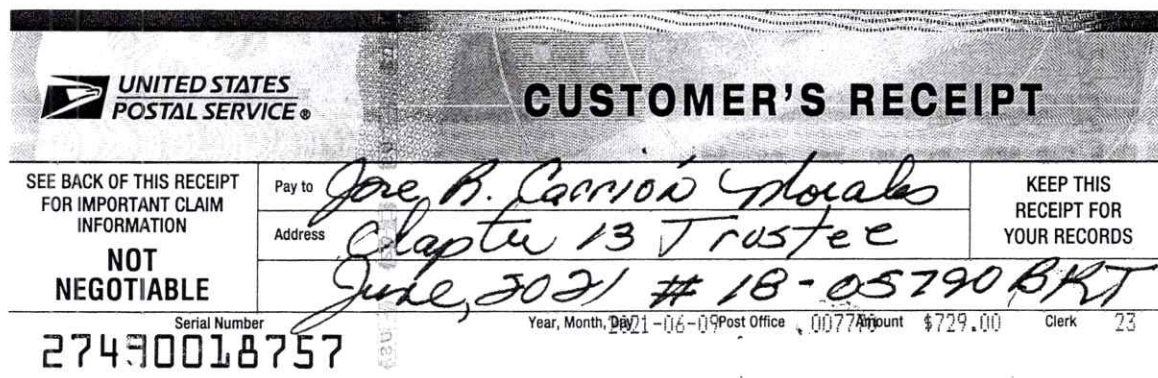 UNITED STATES
POSTAL SERVICE ®
CUSTOMER'S RECEIPT
SEE BACK OF THIS RECEIPT
FOR IMPORTANT CLAIM
INFORMATION
NOT
NEGOTIABLE
Pay to Jose R. Carrión Morales
Address Chapter 13 Trustee
June, 2021 # 18-05790 BKT
KEEP THIS
RECEIPT FOR
YOUR RECORDS
Serial Number Year, Month, Day 2021-06-09 Post Office Amount $729.00 Clerk 23
274900018757